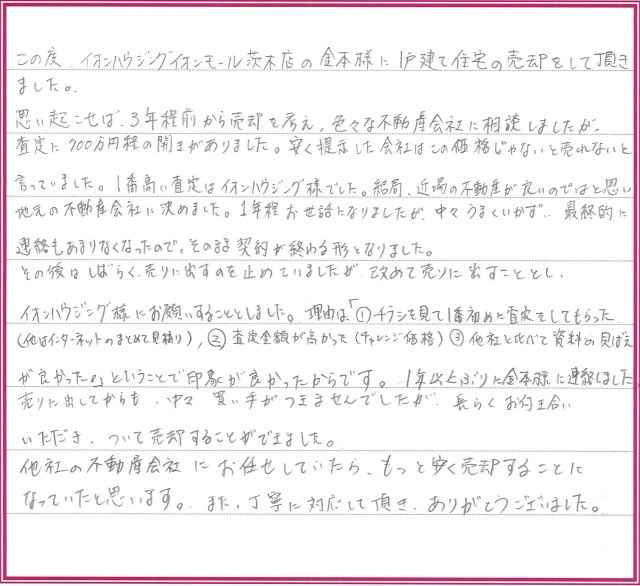 この度、イオンハウジングイオンモール茨木店の金本様に1戸建て住宅の売却をして頂き
ました。
思い起こせば、3年程前から売却を考え、色々な不動産会社に相談しましたが、
査定に700万円程の開きがありました。安く提示した会社はこの価格じゃないと売れないと
言っていました。1番高い査定はイオンハウジング様でした。結局、近場の不動産が良いのではと思い
地元の不動産会社に決めました。1年程お世話になりましたが、中々うまくいかず、最終的に
連絡もあまりなくなったので、そのまま契約が終わる形となりました。
その後はしばらく売りに出すのを止めていましたが、改めて売りに出すこととし、
イオンハウジング様にお願いすることとしました。理由は「①チラシを見て1番初めに査定をしてもらった
(他はインターネットのまとめて見積り)、②査定金額が高かった(チャレンジ価格)③他社と比べて資料の見ばえ
が良かった。」ということで印象が良かったからです。1年以上ぶりに金本様に連絡しました。
売りに出してからも、中々買い手がつきませんでしたが、長らくお付き合い
いただき、ついて売却することができました。
他社の不動産会社にお任せしていたら、もっと安く売却することに
なっていたと思います。また、丁寧に対応して頂き、ありがとうございました。